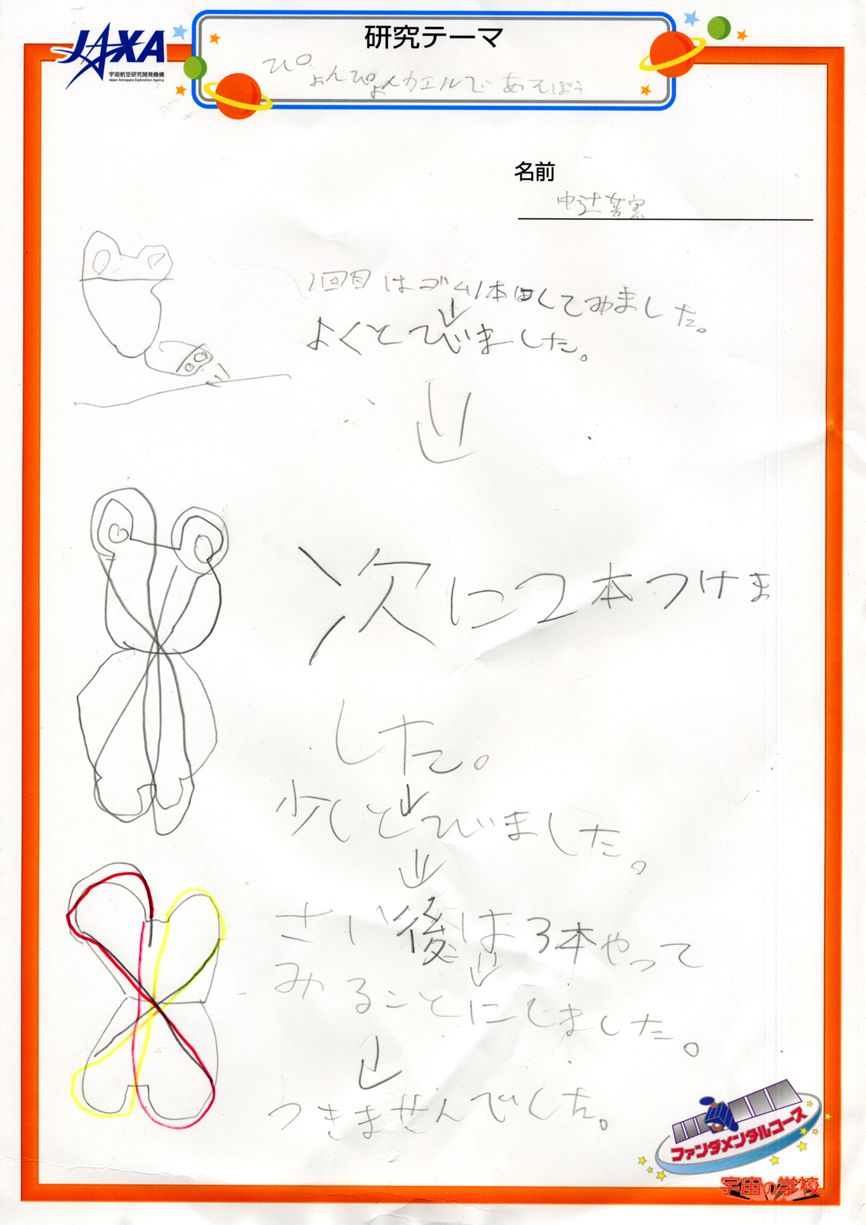 JAXA
宇宙航空研究開発機構
Japan Aerospace Exploration Agency
研究テーマ
ぴょんぴょんカエルであそぼう
名前
1回目はゴム1本はしてみました。
よくとびました。
次に2本つけま
した。
少しとびました。
さい後は3本やって
みることにしました。
つきませんでした。
ファンダメンタルコース
宇宙の学校